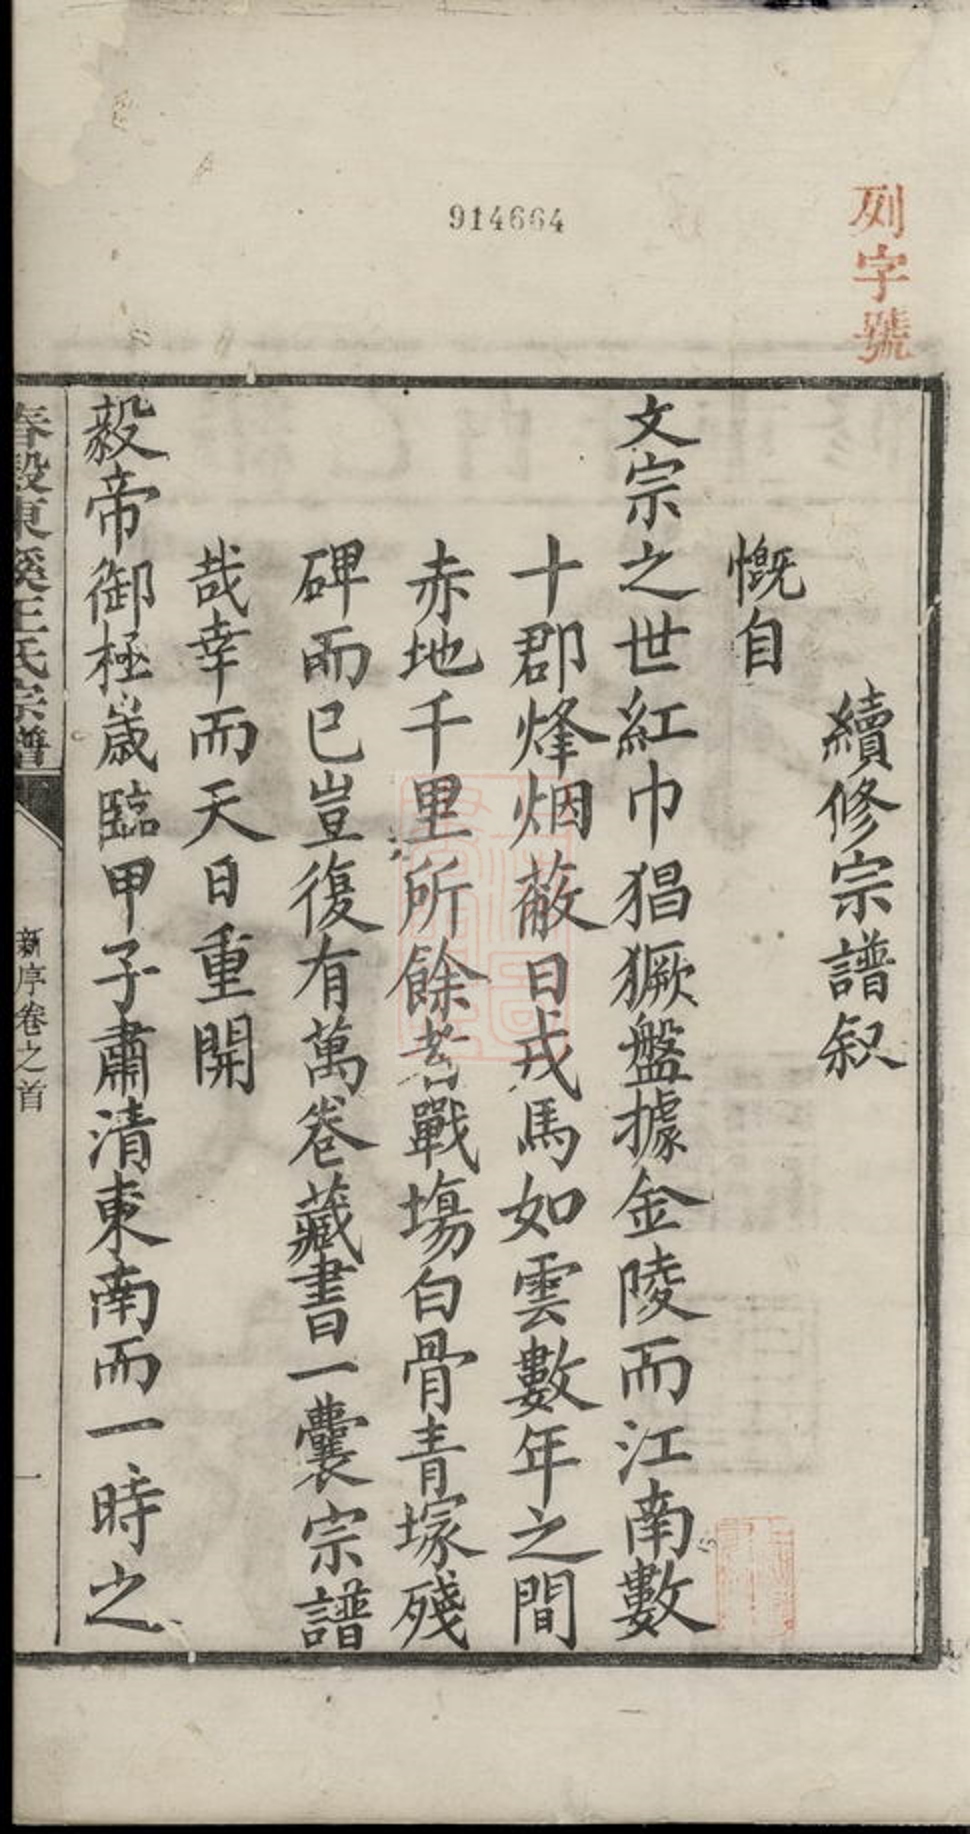 列字號
914664
續修宗譜叙
慨自
文宗之世紅巾猖獗盤據金陵而江南數
十郡烽烟蔽日戎馬如雲數年之間
赤地千里所餘者戰塲白骨青塚殘
碑而已豈復有萬卷藏書一囊宗譜
哉幸而天日重開
毅帝御極歲臨甲子肅清東南而一時之
春穀東溪王氏宗譜
新序卷之首
一